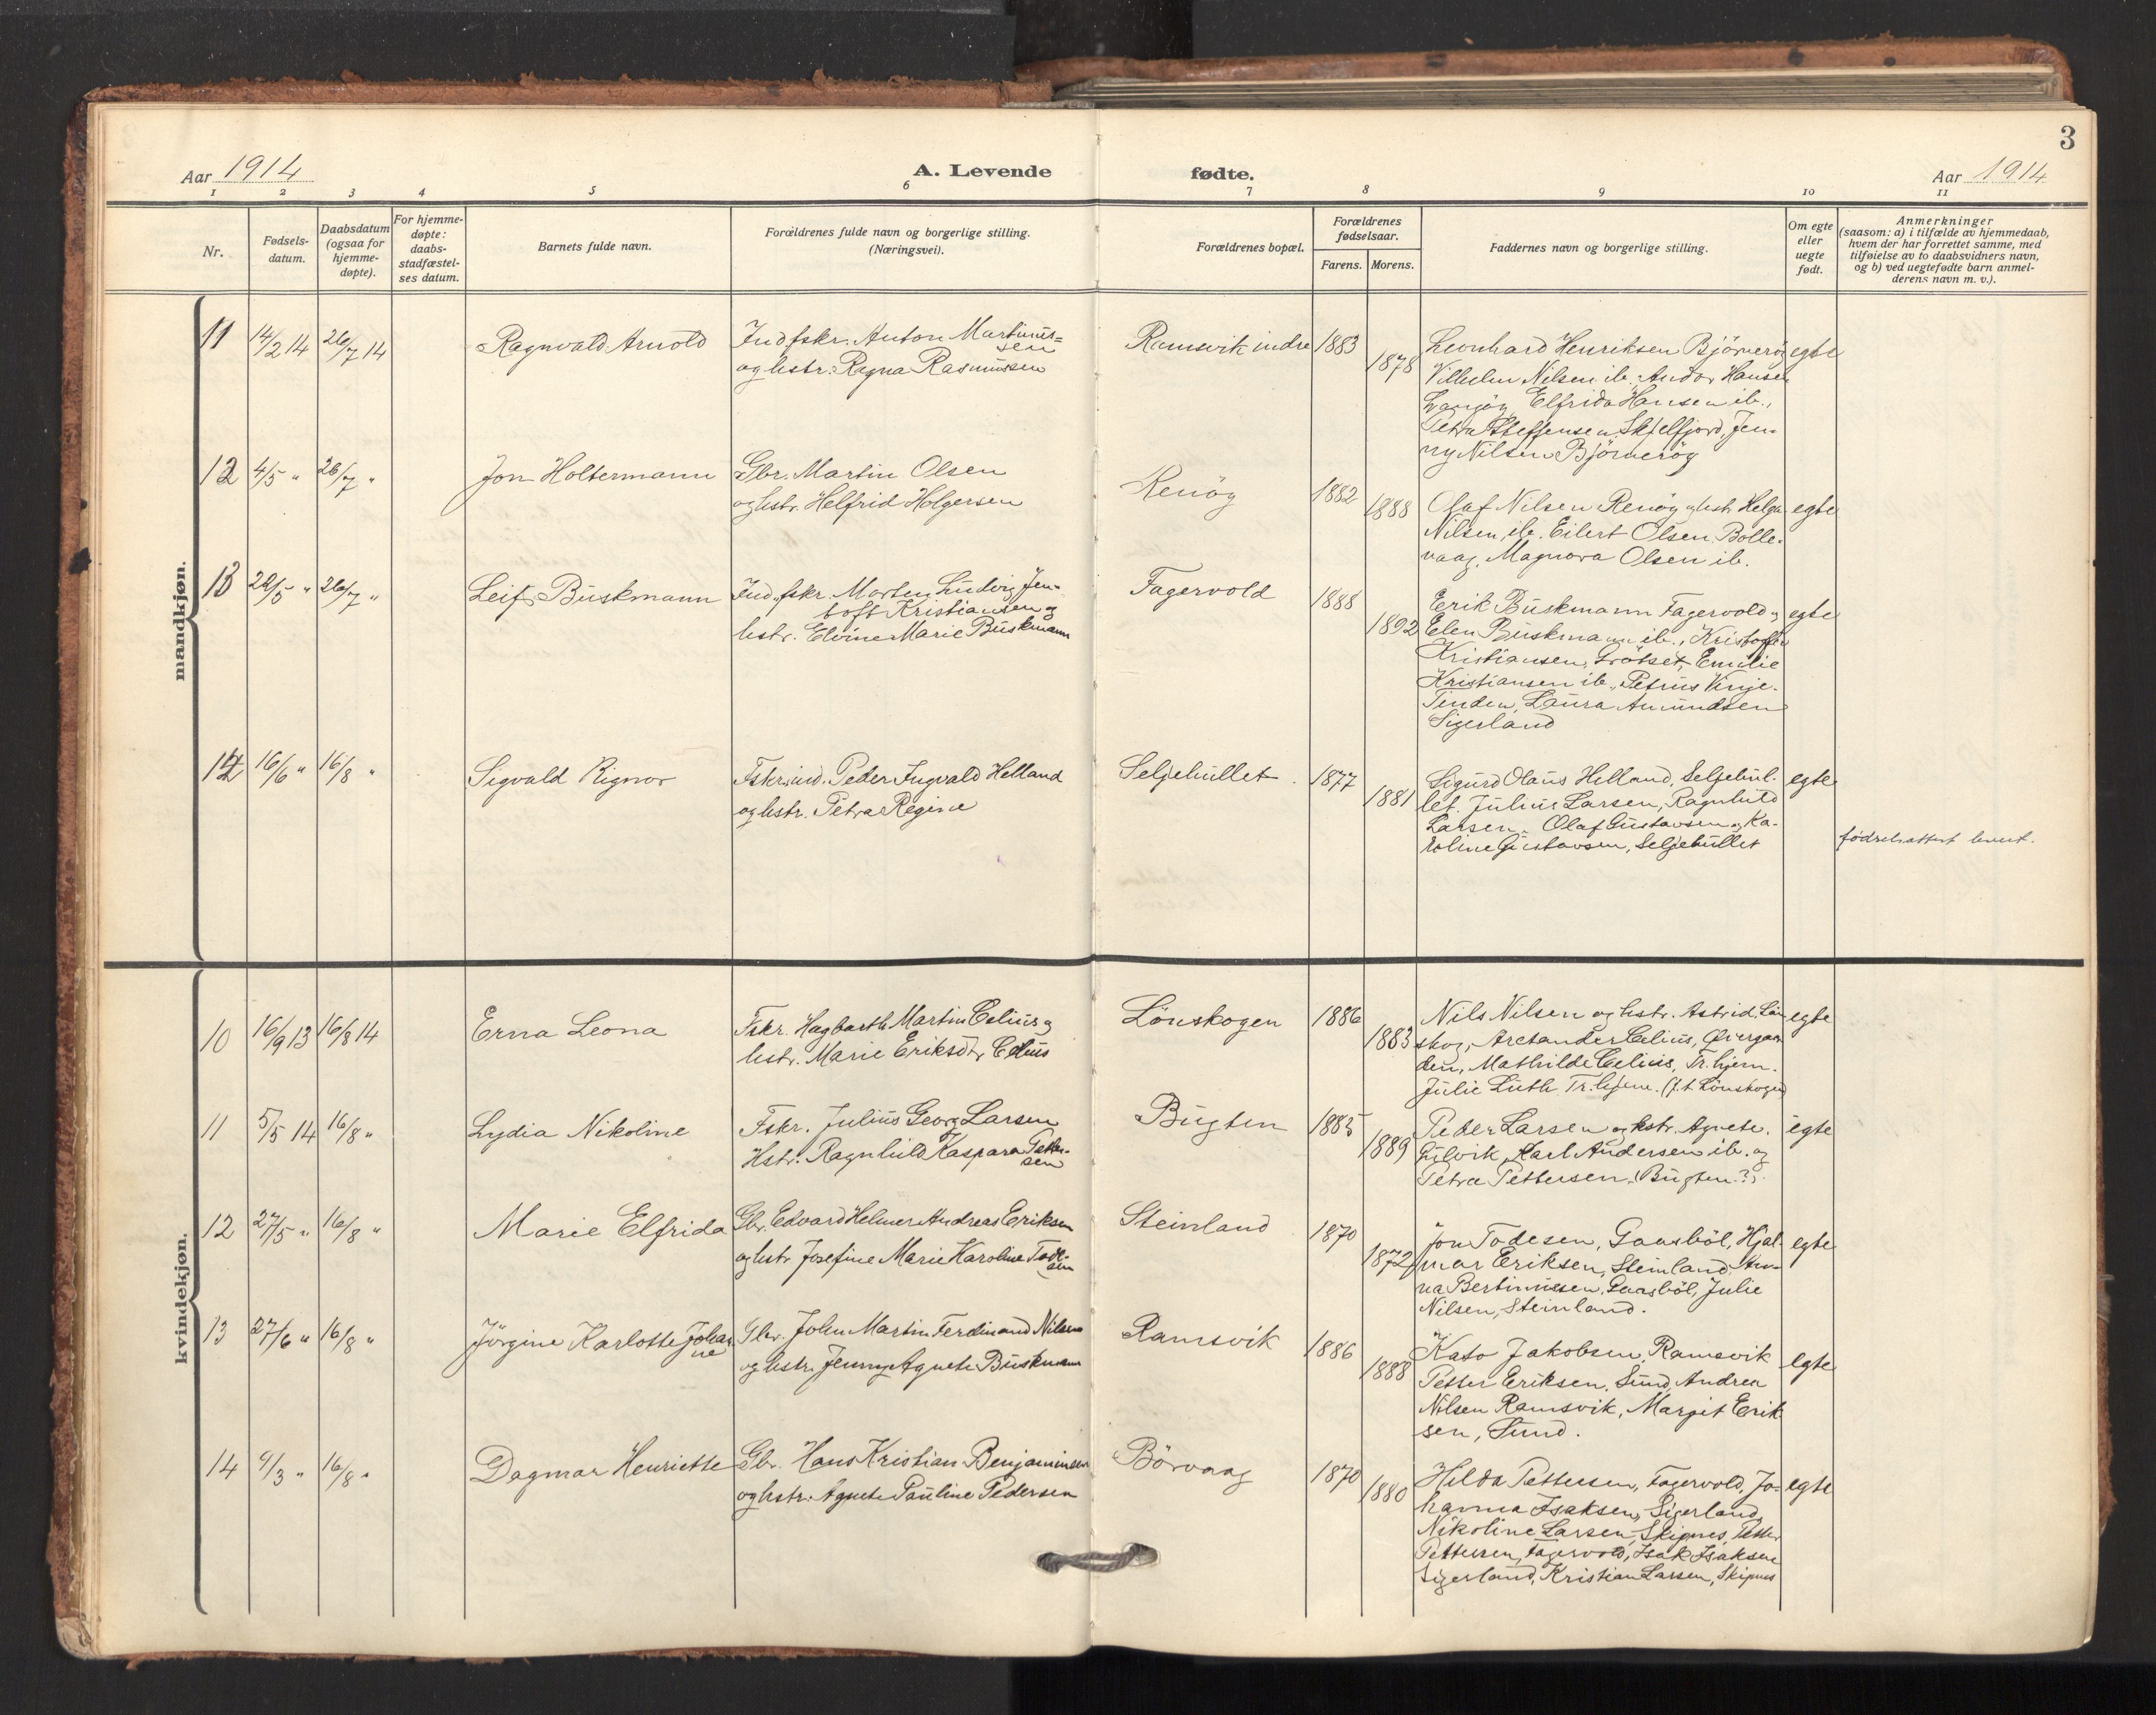 3
Aar 1914
A. Levende fødte.
Aar 1914
1 2 3 4 5 6 7 8 9 10 11
Nr.
Fødsels-
datum.
Daabsdatum
(ogsaa for
hjemme-
døpte).
For hjemme-
døpte:
daabs-
stadfæstel-
ses datum.
Barnets fulde navn.
Forældrenes fulde navn og borgerlige stilling.
(Næringsvei).
Forældrenes bopæl.
Forældrenes
fødselsaar.
Farens. Morens.
Faddernes navn og borgerlige stilling.
Om egte
eller
uegte
født.
Anmerkninger
(saasom: a) i tilfælde av hjemmedaab,
hvem der har forrettet samme, med
tilføielse av to daabsvidners navn,
og b) ved uegtefødte barn anmel-
derens navn m. v.).
mandkjøn.
11 14/2 14 26/7 14 Ragnvald Arnold
Indfskr. Anton Martinus-
sen
og hstr. Ragna Rasmussen
Ramsvik indre 1883 1878
Leonhard Henriksen Björnerög egte
Vilhelm Nilsen ib. Andor Hansen
Elfrida Hansen ib.,
Petra Steffensen Skjelfjord, Jen-
ny Nilsen Björnerög
12 4/5 " 26/7 " Jon Holtermann
Gbr. Martin Olsen
og hstr. Helfrid Holgersen
Renög 1882 1888
Olaf Nilsen Renög og hstr. Helga egte
Nilsen, ib. Eilert Olsen Bolle-
vaag, Magnora Olsen ib.
13 22/5 " 26/7 " Leif Buskmann
Ind.fskr. Morten Ludvig Jen-
toft Kristiansen og
hstr. Elvine Marie Buskmann
Fagervold 1888 1892
Erik Buskmann Fagervold og egte
Elen Buskmann ib., Kristoffer
Kristiansen, Grötset, Emilie
Kristiansen ib., Petrus Vinje-
Tinden, Laura Amundsen
Sigerland
14 16/6 " 16/8 " Sigvald Rignor
Fskr.ind. Peder Ingvald Helland
og hstr. Petra Regine
Seljehullet 1877 1881
Sigurd Olaus Helland, Seljehul- egte
let. Julius Larsen, Ragnhild
Larsen, Olaf Gustavsen og Ka-
roline Gustavsen, Seljehullet
levert.
kvindekjøn.
10 16/9 13 16/8 14 Erna Leona
Fskr. Hagbarth Martin Celius og
hstr. Marie Eriksdtr Celius
Lönskogen 1886 1883
Nils Nilsen og hstr. Astrid, Lön egte
skog, Aretander Celius, Övergaar
den, Mathilde Celius, Tr.hjem.
Julie Luth Tr.hjem. (f.t. Lönskogen)
11 5/5 14 16/8 " Lydia Nikoline
Fskr. Julius Georg Larsen
Hstr. Ragnhild Kaspara Petter-
sen
Bugten 1885 1889
Peder Larsen og hstr. Agnete. egte
Gulvik, Karl Andersen ib. og
Petra Pettersen, (Bugten?).
12 27/5 " 16/8 " Marie Elfrida
Gbr. Edvard Helmer Andreas Eriksen
og hstr Josefine Marie Karoline
Steinland 1870 1872
Jon Todesen, Gaasböl, Hjal- egte
mar Eriksen, Steinland, An-
na Bertinussen, Gaasböl, Julie
Nilsen, Steinland.
13 27/6 " 16/8 " Jörgine Karlotte Johan
ne
Gbr. John Martin Ferdinand Nilsen
og hstr. Jenny Agnete Buskmann
Ramsvik 1886 1888
Kato Jakobsen, Ramsvik egte
Petter Eriksen, Sund, Andrea
Nilsen Ramsvik, Margit Erik
sen, Sund.
14 9/3 " 16/8 " Dagmar Henriette
Gbr. Hans Kristian Benjaminsen
og hstr. Agnete Pauline Pedersen
Börvaag 1870 1880
Hilda Pettersen, Fagervold, Jo- egte
hanna Isaksen, Sigerland,
Nikoline Larsen, Skipnes, Petter
Pettersen, Fagervold, Isak Isaksen
Sigerland, Kristian Larsen, Skipnes